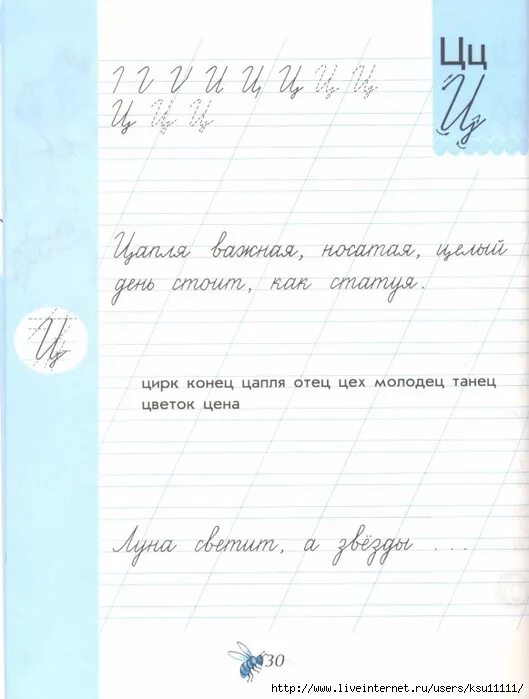 Цц
Ц
Ц Ц Ц Ц
Ц Ц Ц
Цапля важная, носатая, целый
день стоит, как статуя.
Ц
цирк конец цапля отец цех молодец танец
цветок цена
Луна светит, а звёзды ...
30
http://www.liveinternet.ru/users/ksu11111/